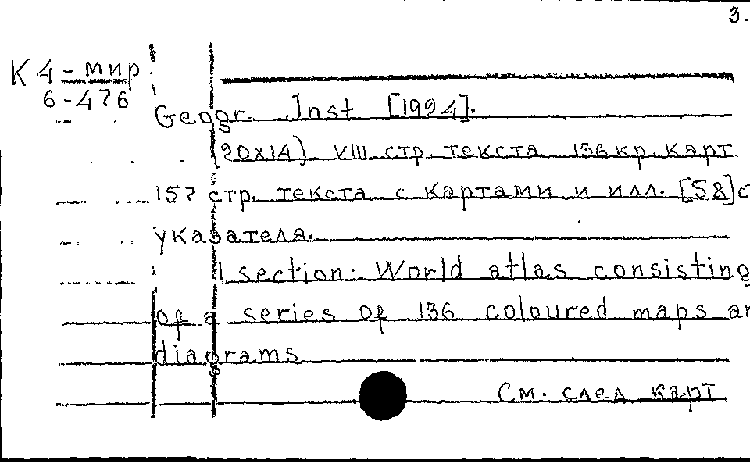 3.
К 4 - мир
6-476
Geogr. Inst [1994].
(20x14) VIII стр. текста 136 кр. карт
157 стр. текста с картами и илл. [58] с
указателя.
1 section: World atlas consisting
of a series of 136 coloured maps an
diagrams
См. след карт